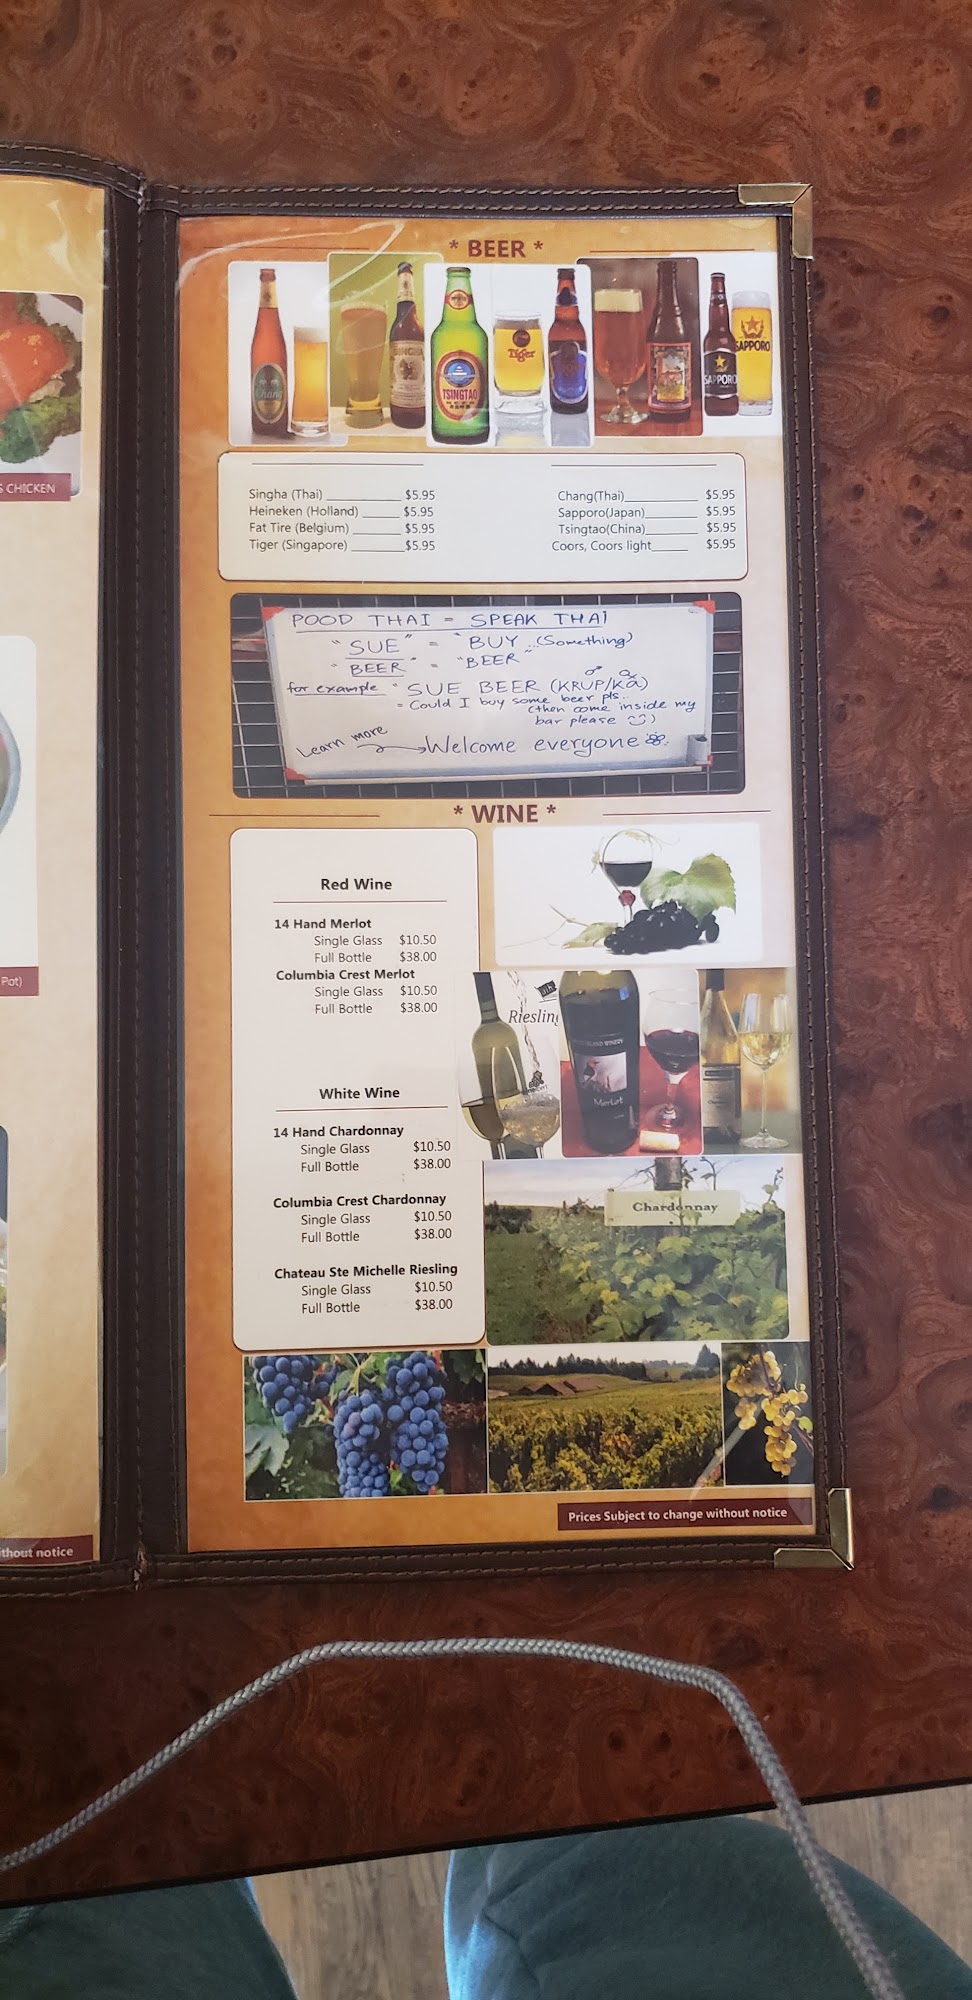 * BEER *
Chang
SINGHA
TSINGTAO
Tiger
SAPPORO
SAPPORO
S CHICKEN
Singha (Thai) $5.95
Heineken (Holland) $5.95
Fat Tire (Belgium) $5.95
Tiger (Singapore) $5.95
Chang(Thai) $5.95
Sapporo(Japan) $5.95
Tsingtao(China) $5.95
Coors, Coors light $5.95
POOD THAI = SPEAK THAI
"SUE" = "BUY...(Something)"
"BEER" = "BEER"
for example "SUE BEER (KRUP/Ka)
= Could I buy some beer pls..
(then come inside my
bar please
Learn more → Welcome everyone
* WINE *
Red Wine
14 Hand Merlot
Single Glass $10.50
Full Bottle $38.00
Columbia Crest Merlot
Single Glass $10.50
Full Bottle $38.00
Pot)
Riesling
Merlot
White Wine
14 Hand Chardonnay
Single Glass $10.50
Full Bottle $38.00
Columbia Crest Chardonnay
Single Glass $10.50
Full Bottle $38.00
Chateau Ste Michelle Riesling
Single Glass $10.50
Full Bottle $38.00
Chardonnay
Prices Subject to change without notice
thout notice